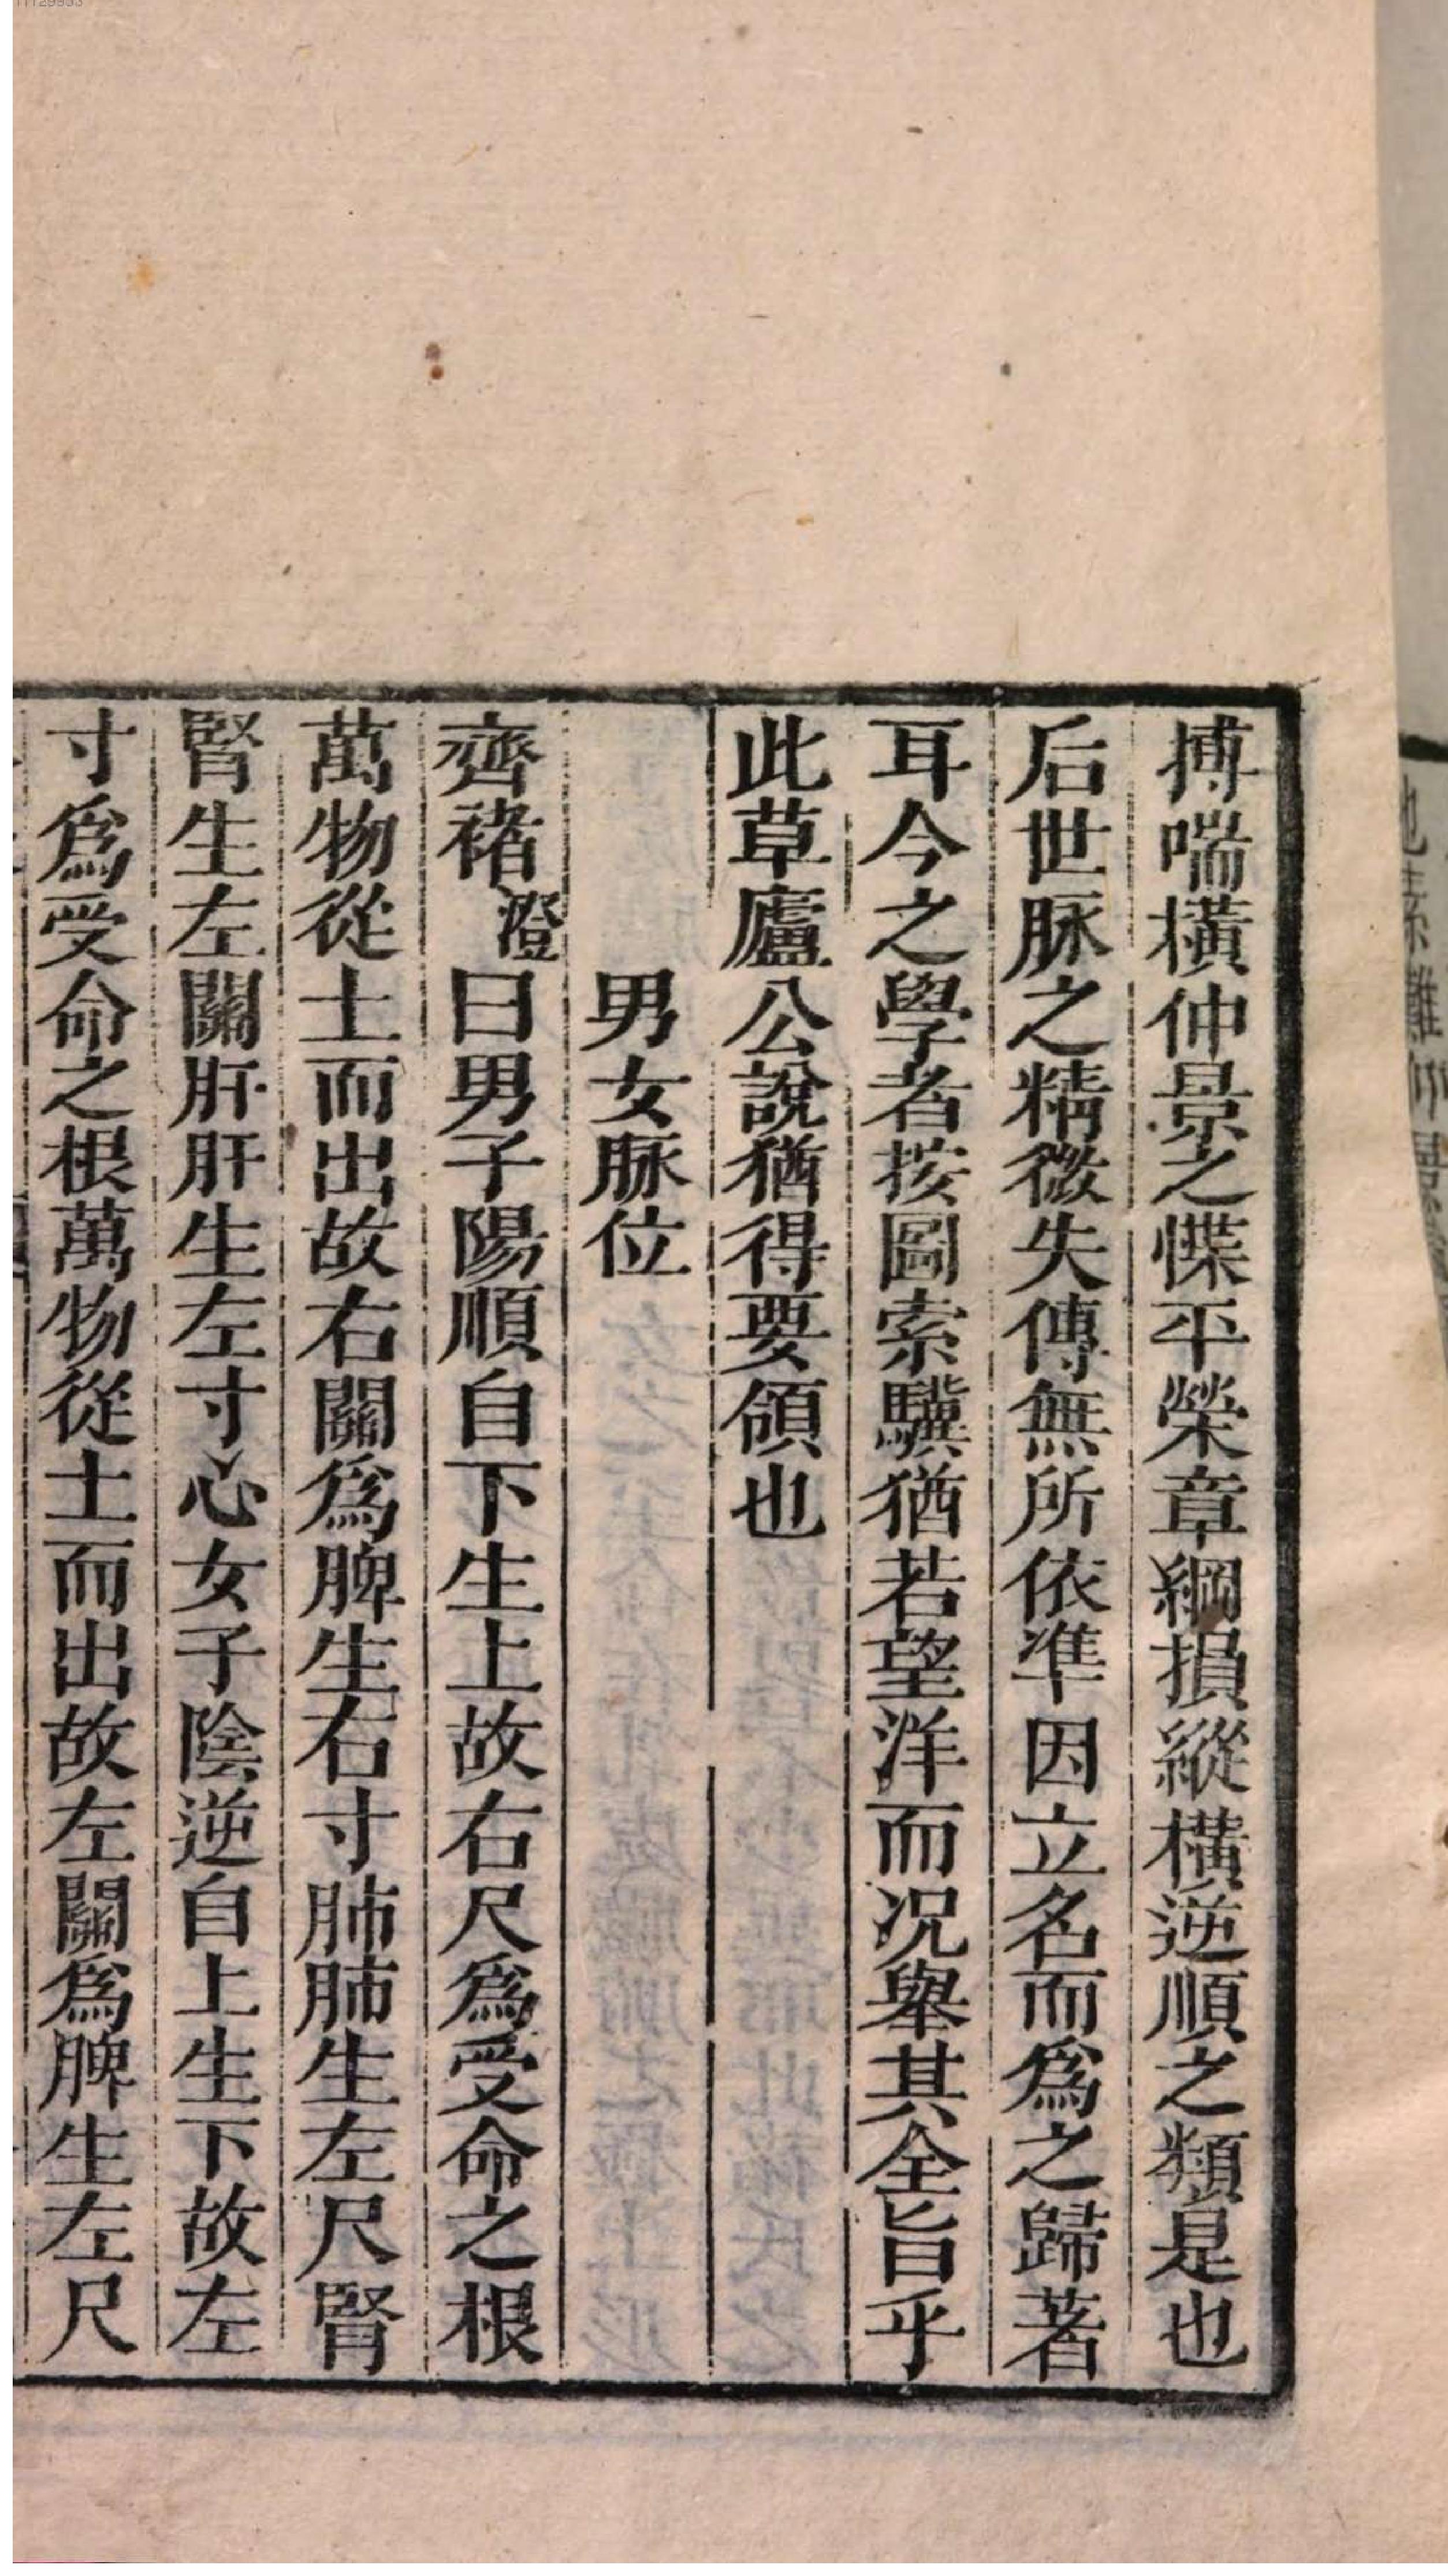 搏喘橫仲景之惵平榮章綱損縱橫逆順之類是也
后世脉之精微失傳無所依準因立名而爲之歸著
耳今之學者按圖索驥猶若望洋而况舉其全旨乎
此草廬公說猶得要領也
男女脉位
齊褚澄曰男子陽順自下生上故右尺爲受命之根
萬物從土而出故右關爲脾生右寸肺肺生左尺腎
腎生左關肝肝生左寸心女子陰逆自上生下故左
寸爲受命之根萬物從土而出故左關爲脾生左尺